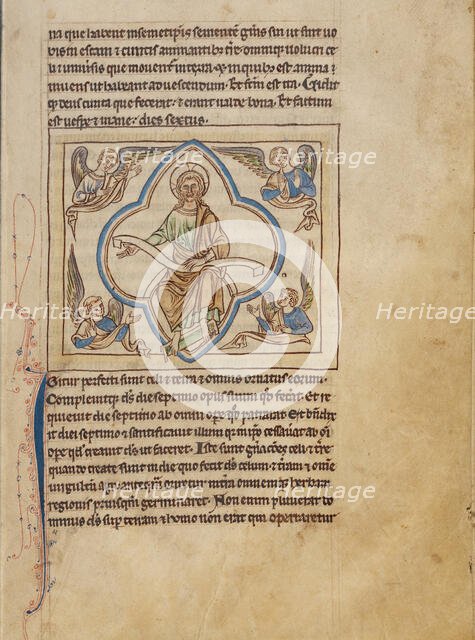 na que habent in semetipsis sementē gñis sui ut sint uo
bis in escam & cunctis animantibȝ tr̄e. omnique uolucri ce
li & uniuersis que mouent̄ in terra & in quibȝ est anima
uiuens ut habeant ad uescendum. Et fc̄m est ita. Uidit
qȝ deus cuncta que fecerat & erant ualde bona. Et factum
est uesp̄e & mane. dies sextus.
Heritage
Heritage
Heritage
Heritage
Heritage
Heritage
Igitur perfecti sunt celi & terra & omnis ornatus eorum.
Compleuitqȝ dȿ die septimo opus suum qđ fecat̄. Et re
quieuit die septimo ab omni opere qđ patrarat. Et bn̄dix
it diei septimo & sanctificauit illum qr in ip̄o cessauerat ab oī
ope qđ creauit dȿ ut faceret. Iste sunt gn̄acōes celi & tr̄e
quando create sunt in die quo fecit dȿ celum & tr̄am & omne
uirgultū agri
herbam
regionis priusqm̄ germinaret. Non enim pluuerat do
minus dȿ sup̄ terram & homo non erat qui operaretur
Heritage
Heritage